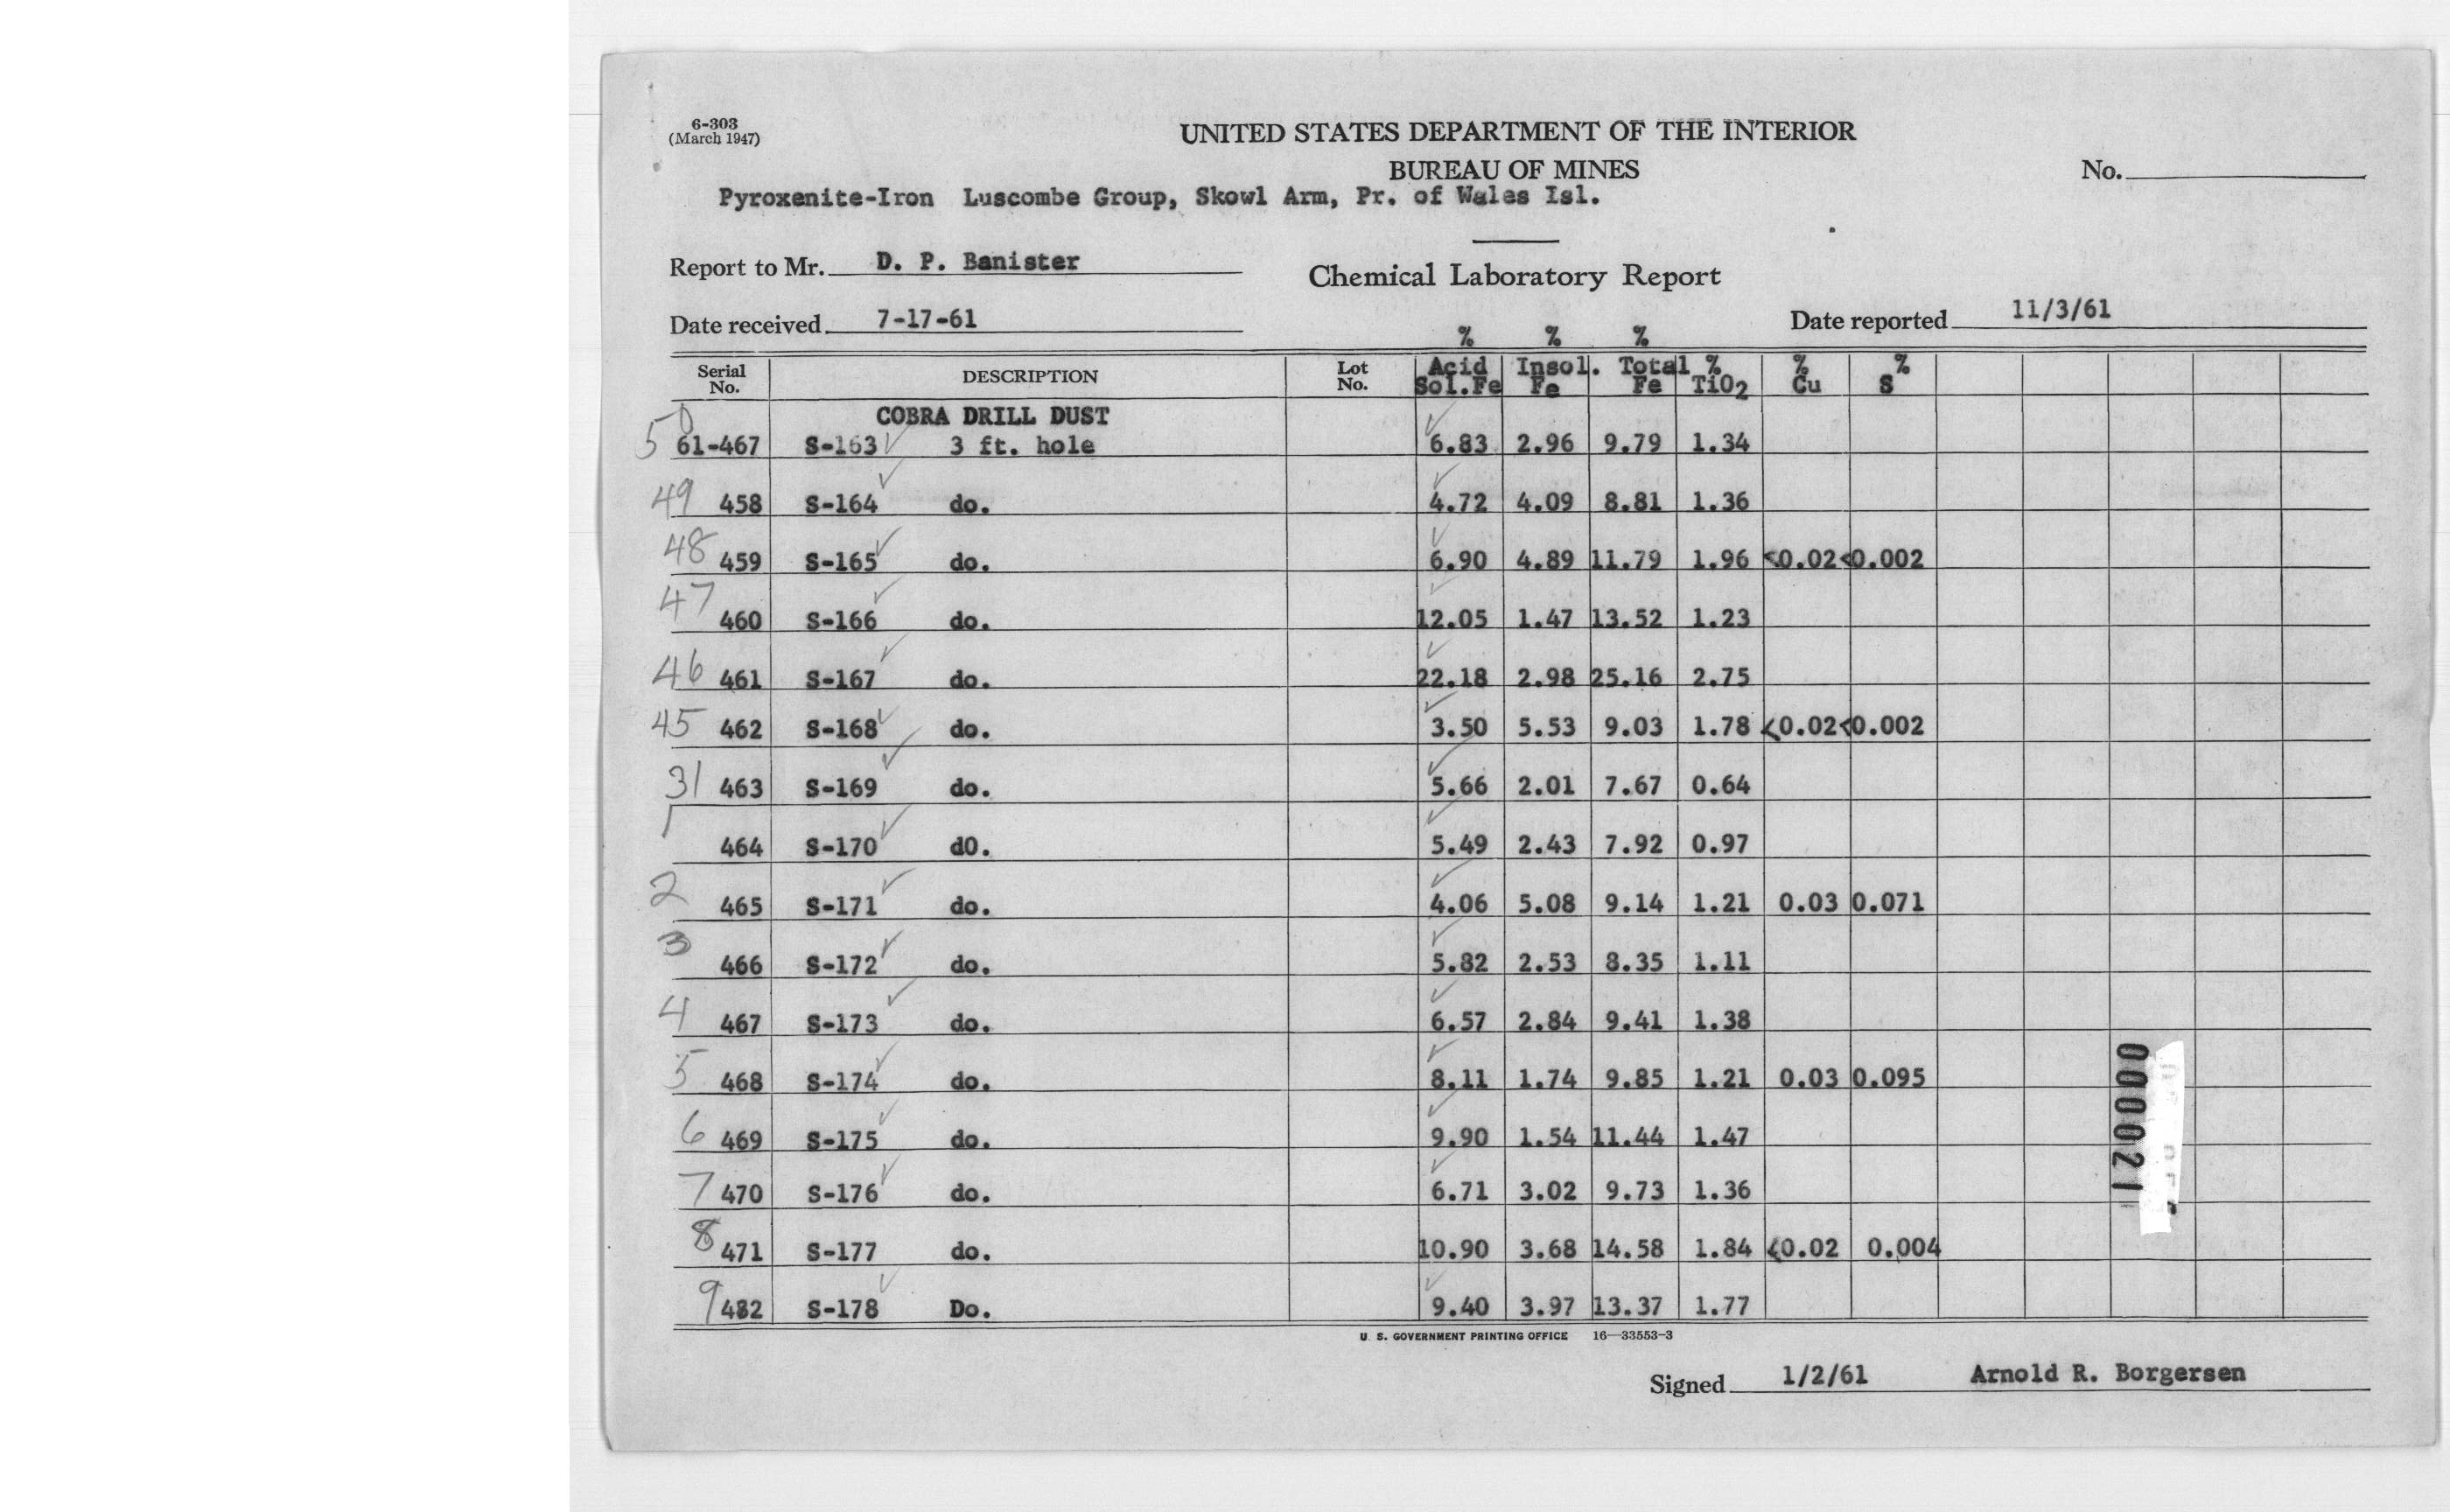 6-303
(March 1947)
UNITED STATES DEPARTMENT OF THE INTERIOR
BUREAU OF MINES
No.
Pyroxenite-Iron Luscombe Group, Skowl Arm, Pr. of Wales Isl.
Report to Mr. D. P. Banister
Chemical Laboratory Report
Date received 7-17-61
Date reported 11/3/61
% % %
Serial No. DESCRIPTION Lot No. Acid Sol.Fe Insol. Fe Total Fe % TiO2 % Cu % S
COBRA DRILL DUST
50 61-467 S-163 ✓ 3 ft. hole ✓ 6.83 2.96 9.79 1.34
49 458 S-164 ✓ do. ✓ 4.72 4.09 8.81 1.36
48 459 S-165 ✓ do. ✓ 6.90 4.89 11.79 1.96 <0.02 <0.002
47 460 S-166 ✓ do. ✓ 12.05 1.47 13.52 1.23
46 461 S-167 ✓ do. ✓ 22.18 2.98 25.16 2.75
45 462 S-168 ✓ do. ✓ 3.50 5.53 9.03 1.78 <0.02 <0.002
31 463 S-169 ✓ do. ✓ 5.66 2.01 7.67 0.64
1 464 S-170 ✓ dO. ✓ 5.49 2.43 7.92 0.97
2 465 S-171 ✓ do. ✓ 4.06 5.08 9.14 1.21 0.03 0.071
3 466 S-172 ✓ do. ✓ 5.82 2.53 8.35 1.11
4 467 S-173 ✓ do. ✓ 6.57 2.84 9.41 1.38
5 468 S-174 ✓ do. ✓ 8.11 1.74 9.85 1.21 0.03 0.095
6 469 S-175 ✓ do. ✓ 9.90 1.54 11.44 1.47
7 470 S-176 ✓ do. ✓ 6.71 3.02 9.73 1.36
8 471 S-177 do. 10.90 3.68 14.58 1.84 <0.02 0.004
9 482 S-178 ✓ Do. ✓ 9.40 3.97 13.37 1.77
000021
U. S. GOVERNMENT PRINTING OFFICE 16—33553-3
Signed 1/2/61 Arnold R. Borgersen